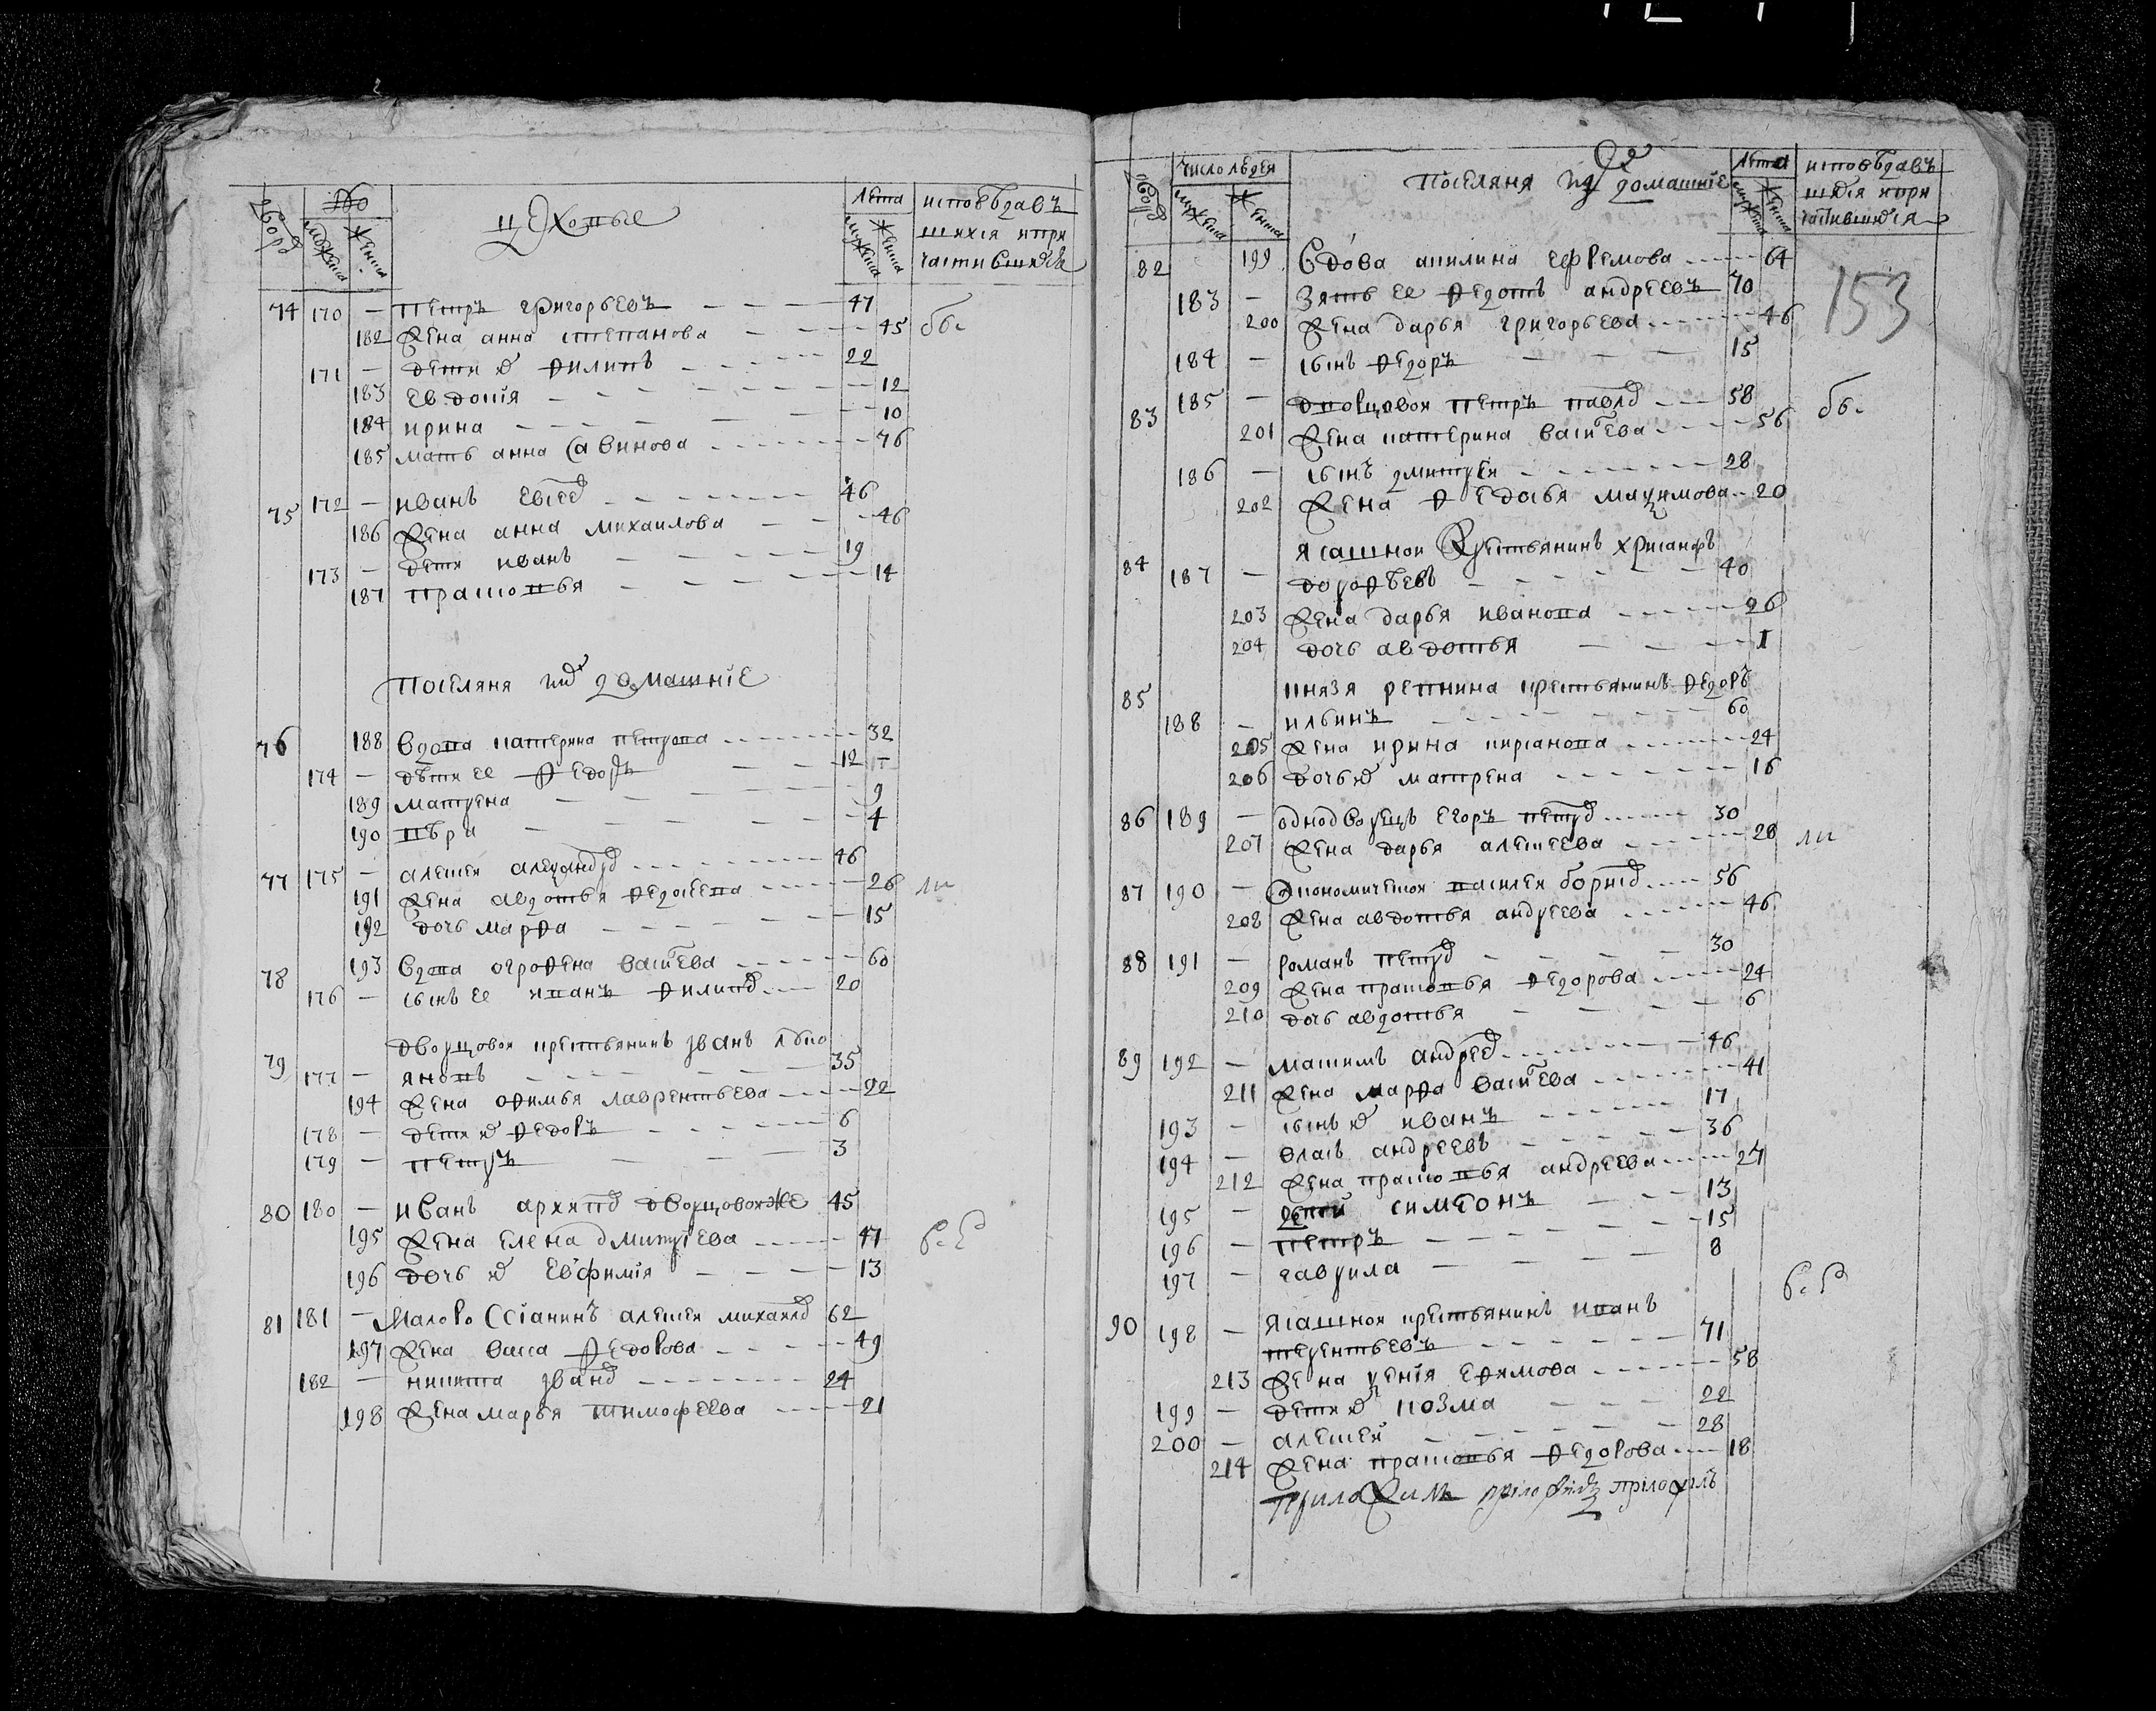 цеховые
двору
мужеска
женска
лета
мужеска
женска
исповедавъ
шихся и при
частившихся
74 170 — петръ григорьевъ 47
182 жена анна степанова 45
171 — дети их филипъ 22
183 евдокия 12
184 ирина 10
185 мать анна савинова 76
75 172 — иванъ 46
186 жена анна михаилова 46
173 — дети иванъ 19
187 прасковья 14
поселяня их домашние
76 188 вдова катерина петрова 32
174 — дѣти ее федоръ 12
189 матрена 9
190 вѣра 4
77 175 — алексей александро 46
191 жена авдотья федосеева 26
192 дочь марфа 15
78 193 вдова огрофена васильева 60
176 — сынъ ее иванъ филипо 20
79 дворцовои крестьянинъ иванъ
177 — яковъ 35
194 жена офимья лаврентьева 22
178 — дети их федоръ 6
179 — петръ 3
80 180 — иванъ архипо дворцовои же 45
195 жена елена дмитрева 47
196 дочь их евфимия 13
81 181 — малороссіанинъ алексеи михаило 62
197 жена васса федорова 49
182 — никита ивано 24
198 жена марья тимофеева 21
число людей
двору
мужеска
женска
поселяня их домашние
лета
мужеска
женска
исповѣдавъ
шихся и при
частившихся
153
82 199 вдова акилина ефремова 64
183 — зять ее федотъ андреевъ 70
200 жена дарья григорьева 46
184 — сынъ федоръ 15
83 185 — дворцовои петръ павло 58
201 жена катерина васильева 56
186 — сынъ дмитреи 28
202 жена федосья максимова 20
84 ясашнои крестьянинъ хрисанфъ
187 — дорофѣевъ 40
203 жена дарья иванова 26
204 дочь авдотья 1
85 князя репнина крестьянинъ федоръ
188 — ильинъ 60
205 жена ирина кирсанова 24
206 дочь их матрена 16
86 189 — однодворецъ егоръ петро 30
207 жена дарья алексеева 28
87 190 — экономическои василеи борисо 56
208 жена авдотья андреева 46
88 191 — романъ петро 30
209 жена прасковья федорова 24
210 дочь авдотья 6
89 192 — максимъ андрее 46
211 жена марфа васильева 41
193 — сынъ их иванъ 17
194 — власъ андреевъ 36
212 жена прасковья андреева 27
195 — симеонъ 13
196 — петръ 15
197 — гаврила 8
90 198 — ясашнои крестьянинъ иванъ
терентьевъ 71
213 жена ксения ефимова 58
199 — дети их козма 22
200 — алексеи 28
214 жена прасковья федорова 18
приложилъ приложилъ приложилъ